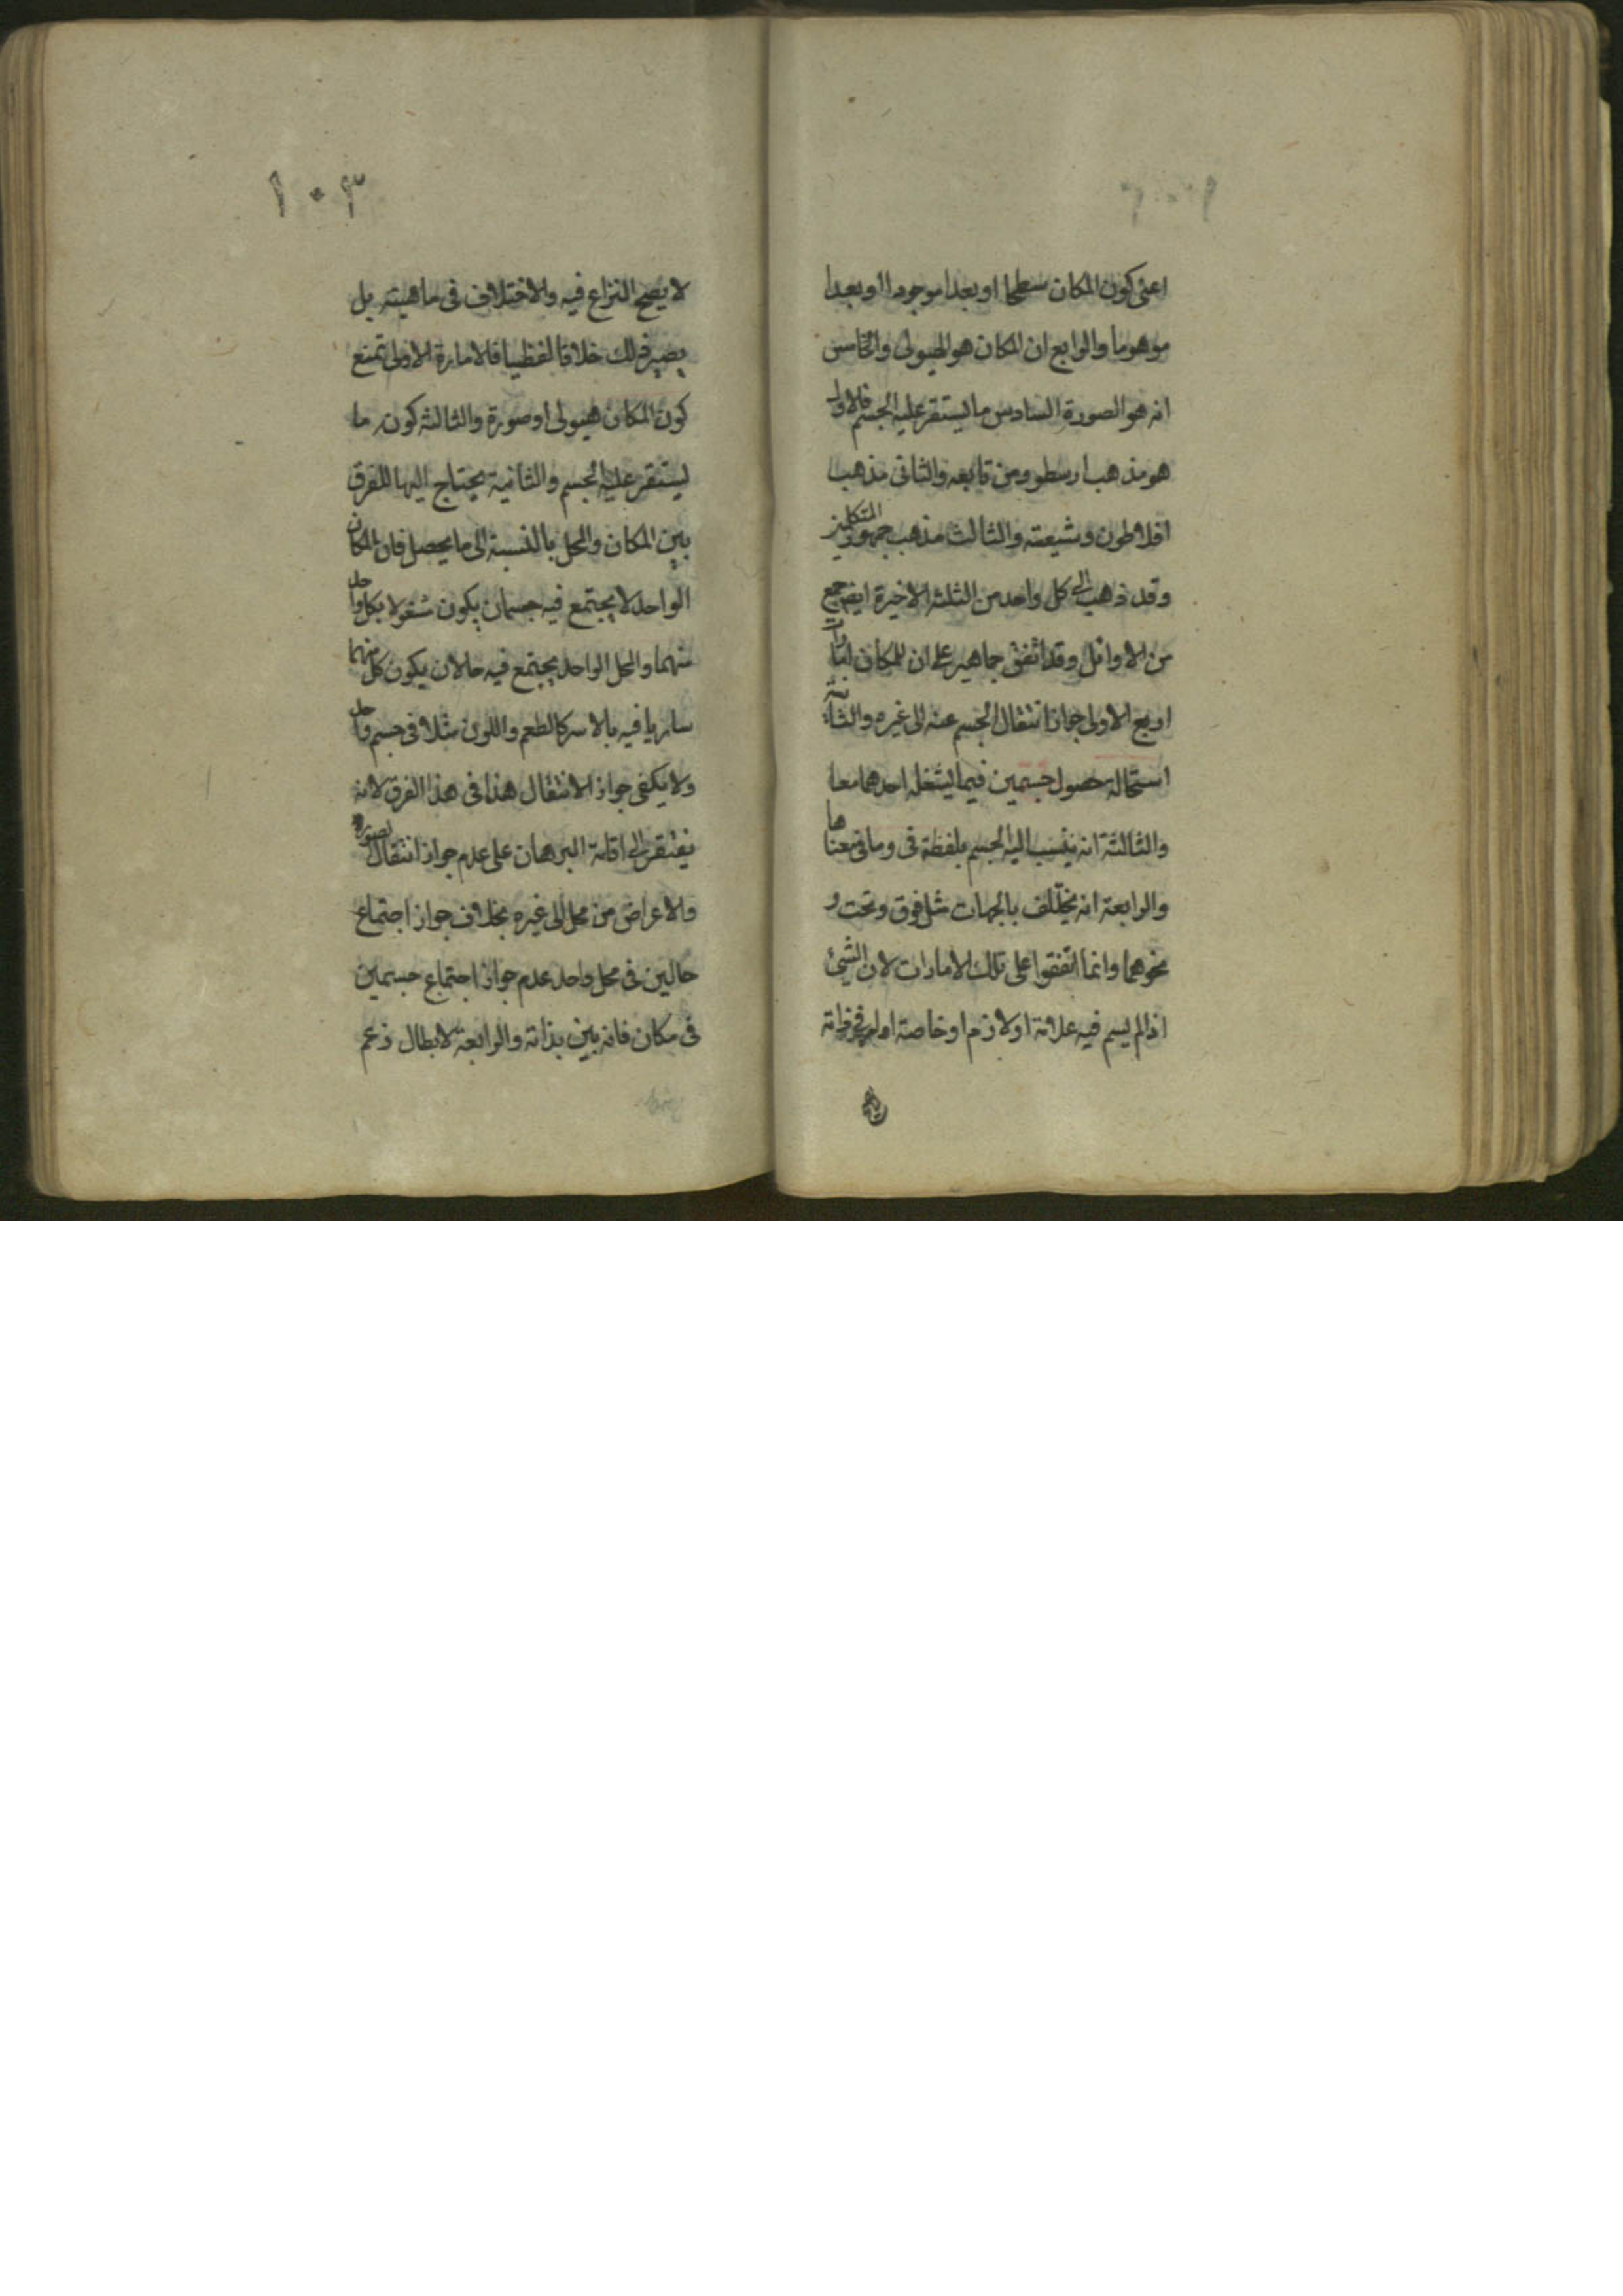 اعنى كون المكان سطحا او بعدا موجودا او بعدا
موهوما والرابع ان المكان هو الهيولى والخامس
انه هو الصورة السادس ما يستقر عليه الجسم فالاول
هو مذهب ارسطو ومن تابعه والثانى مذهب
افلاطون وشيعته والثالث مذهب جمهور المتكلمين
وقد ذهب الى كل واحد من الثلثه الاخيرة ايضا جمع
من الاوائل وقد اتفق جماهير على ان للمكان امارات
اربع الاولى جواز انتقال الجسم عنه الى غيره والثانية
استحالة حصول جسمين فيما يشغله احدهما معا
والثالثة انه ينسب اليه الجسم بلفظة فى وما فى معناها
والرابعة انه يختلف بالجهات مثل فوق وتحت و
نحوهما وانما اتفقوا على تلك الامارات لان الشئ
اذا لم يسم فيه علامة او لازم او خاصة
١٠٣
لا يصح النزاع فيه والاختلاف فى ماهيته بل
يصير ذلك خلافا لفظيا فالامارة الاولى تمنع
كون المكان هيولى او صورة والثالثه كونه ما
يستقر عليه الجسم والثانية يحتاج اليها للفرق
بين المكان والمحل بالنسبة الى ما يحصل فان المكان
الواحد لا يجتمع فيه جسمان يكون شغولا بكل واحد
منهما والمحل الواحد يجتمع فيه حالان يكون كل منهما
ساريا فيه بالاسر كالطعم واللون مثلا فى جسم واحد
ولا يكفى جواز الانتقال هذا فى هذا الفرق لانه
يفتقر الى اقامة البرهان على عدم جواز انتقال الصورة
والاعراض من محل الى غيره بخلاف جواز اجتماع
حالين فى محل واحد عدم جواز اجتماع جسمين
فى مكان فانه بين بذاته والرابعة لابطال زعم